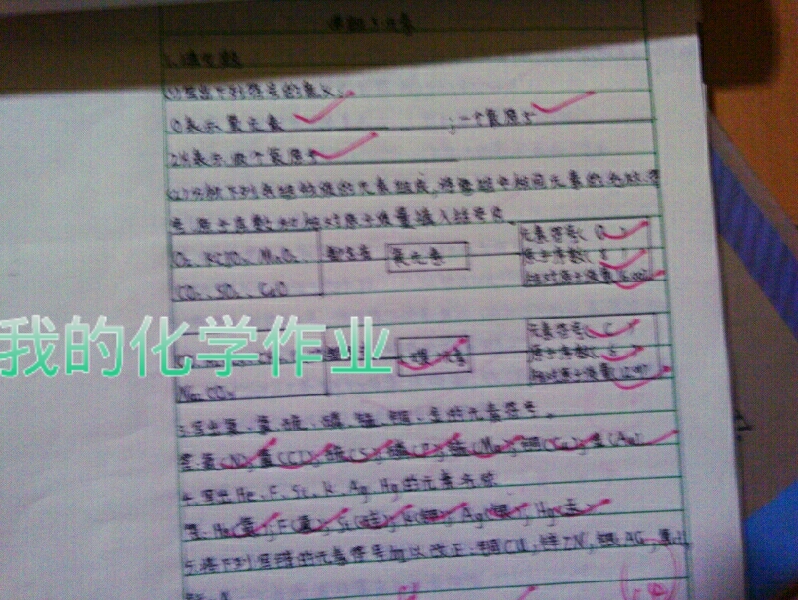 课题3 元素
1.填空题
(1)写出下列符号的意义。
①表示 氮元素 ;一个氮原子
2N表示 两个氮原子
(2)分析下列各组物质的元素组成,将每组中相同元素的
号、原子序数和相对原子质量填入括号内
O₂、KClO₃、MnO₂、 都含有 氧元素 元素符号( O )
原子序数( 8 )
CO₂、SO₂、CuO 相对原子质量(16.00)
我的化学作业
元素符号( C )
碳元素 原子序数( 6 )
Na₂CO₃ 相对原子质量(12.01)
3.写出氮、氯、硫、磷、锰、铜、金的元素符号。
答:氮(N);氯(Cl);硫(S);磷(P);锰(Mn);铜(Cu);金(Au)
4.写出He、F、Si、K、Ag、Hg的元素名称
答:He(氦);F(氟);Si(硅);K(钾);Ag(银);Hg(汞)
5.将下列写错的元素符号加以改正:铜CU,锌ZN,银AG,